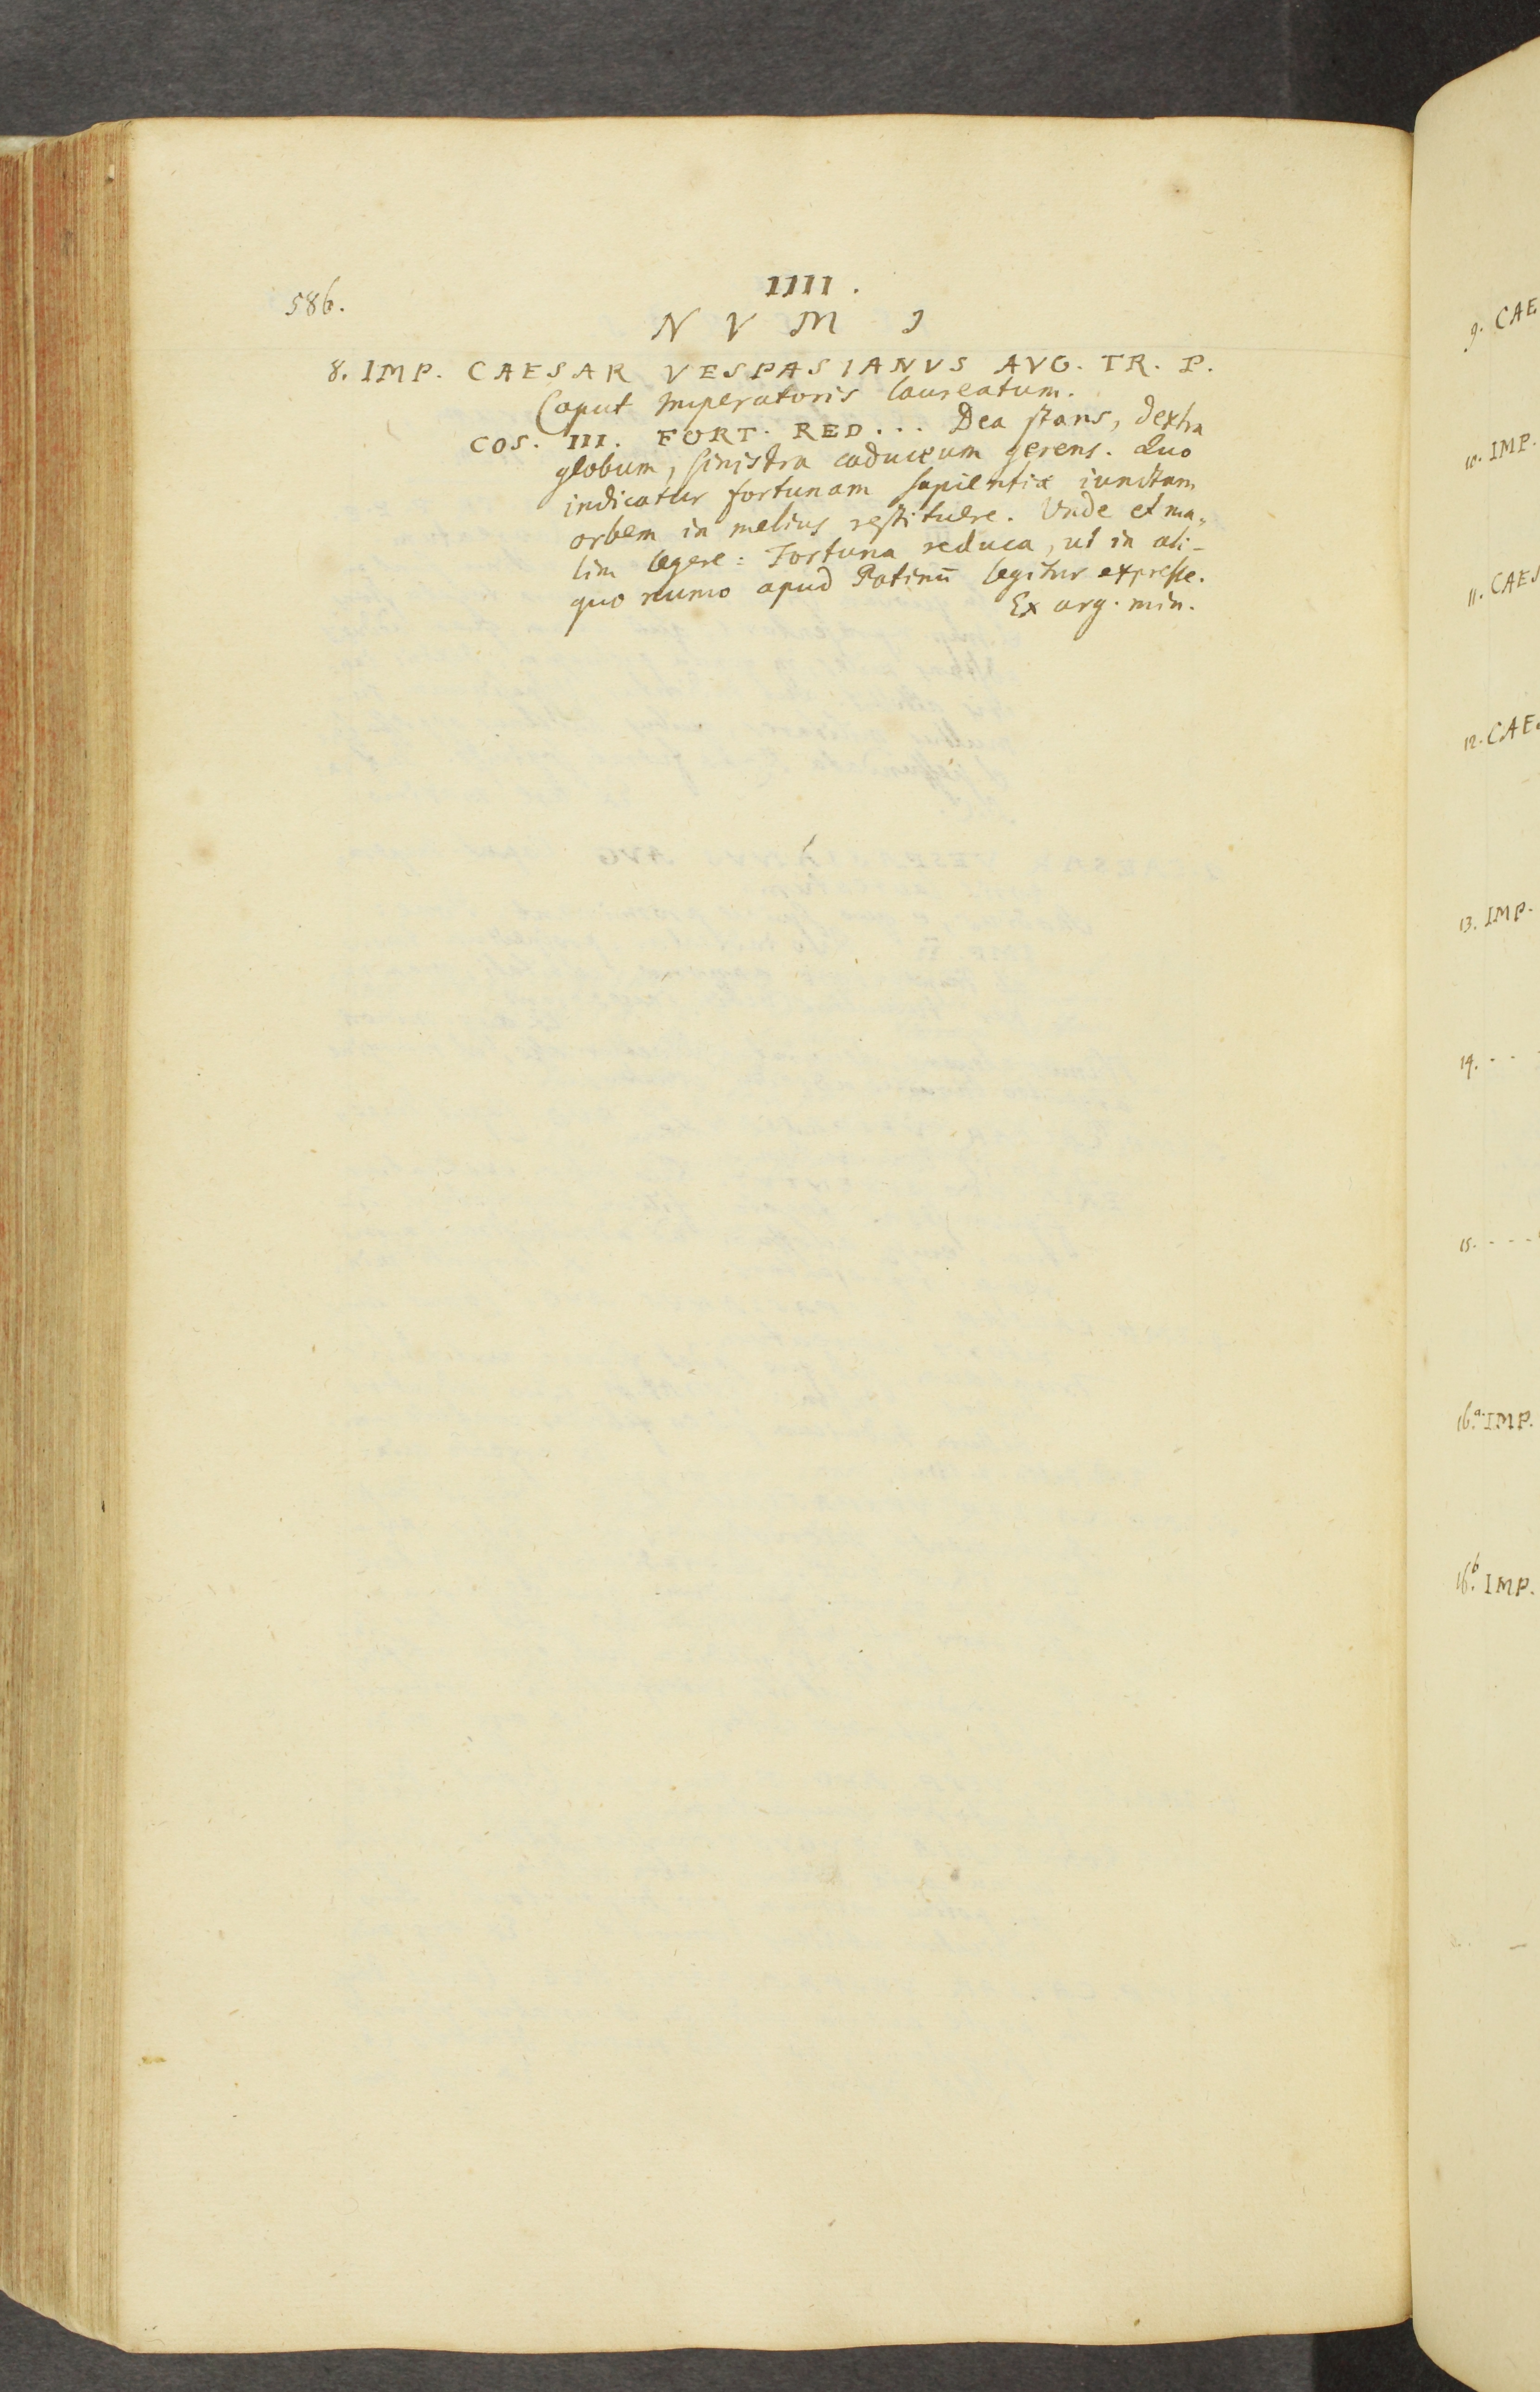 586.
IIII.
N V M I
8. IMP. CAESAR VESPASIANVS AVG. TR. P.
Caput Imperatoris laureatum.
COS. III. FORT. RED... Dea stans, dextra
globum, sinistra caduceum gerens. Quo
indicatur fortunam sapientiæ iunctam
orbem in melius restituere. Unde et ma-
lim legere: Fortuna reduca, ut in ali-
quo numo apud Patinū legitur expresse.
Ex arg. min.
9. CAE
10. IMP.
11. CAES
12. CAE
13. IMP.
14. - -
15. - - -
16.a IMP.
16.b IMP.